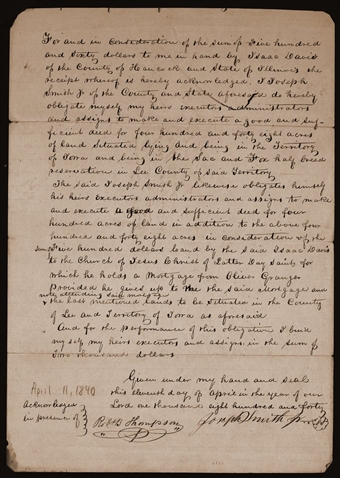 For and in consideration of the sum of Five hundred
and Sixty dollars to me in hand by Isaac Davis
of the County of Hancock and State of Illinois the
receipt whereof is hereby acknowledged, I Joseph
Smith Jr of the County and State aforesaid do hereby
obligate myself my heirs executors administrators
and assigns to make and execute a good and suf-
ficient deed for four hundred and forty eight acres
of land Situated lying and being in the Territory
of Iowa and being in the Sac and Fox half breed
reservation in Lee County of said Territory
The said Joseph Smith Jr likewise obligates himself
his heirs executors administrators and assigns to make
and execute a good and sufficient deed for four
hundred acres of land in addition to the above four
hundred and forty eight acres in consideration of the
sum of Five hundred dollars loand by the said Isaac Davis
to the Church of Jesus Christ of Latter Day Saints for
which he holds a Mortgage from Oliver Granger
Provided he gives up to me the said Mortgage and
said mortgage
the last mentioned lands to be Situated in the County
of Lee and Territory of Iowa as aforesaid
And for the performance of this obligation I bind
myself my heirs executors and assigns in the sum of
two thousand dollars
Given under my hand and Seal
this eleventh day of April in the year of our
Lord one thousand eight hundred and forty
April 11, 1840
Acknowledged
in presence of
Robt B Thompson
Joseph Smith Jr